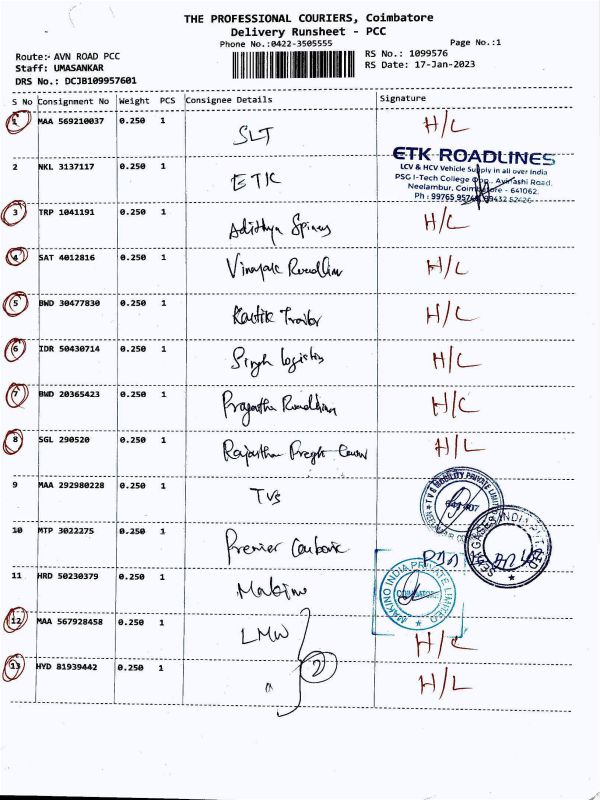 THE PROFESSIONAL COURIERS, Coimbatore
Delivery Runsheet - PCC
Phone No.:0422-3505555
Page No.:1
Route:- AVN ROAD PCC
RS No.: 1099576
Staff: UMASANKAR
RS Date: 17-Jan-2023
DRS No.: DCJB109957601
S No Consignment No Weight PCS Consignee Details Signature
1 MAA 569210037 0.250 1 SLT H/C
2 NKL 3137117 0.250 1 ETK
ETK ROADLINES
LCV & HCV Vehicle Supply in all over India
PSG I-Tech College Opp., Avinashi Road,
Neelambur, Coimbatore - 641062.
3 TRP 1041191 0.250 1 H/C
4 SAT 4012816 0.250 1 H/L
5 BWD 30477830 0.250 1 H/C
6 IDR 50430714 0.250 1 Singh Logistics H/C
7 BWD 20365423 0.250 1 H/C
8 SGL 290520 0.250 1 H/L
9 MAA 292980228 0.250 1 TVS
10 MTP 3022275 0.250 1 Premier
11 HRD 50230379 0.250 1 Makino
MAKINO INDIA PRIVATE LIMITED
COIMBATORE
12 MAA 567928458 0.250 1 LMW H/C
2
13 HYD 81939442 0.250 1 " H/L